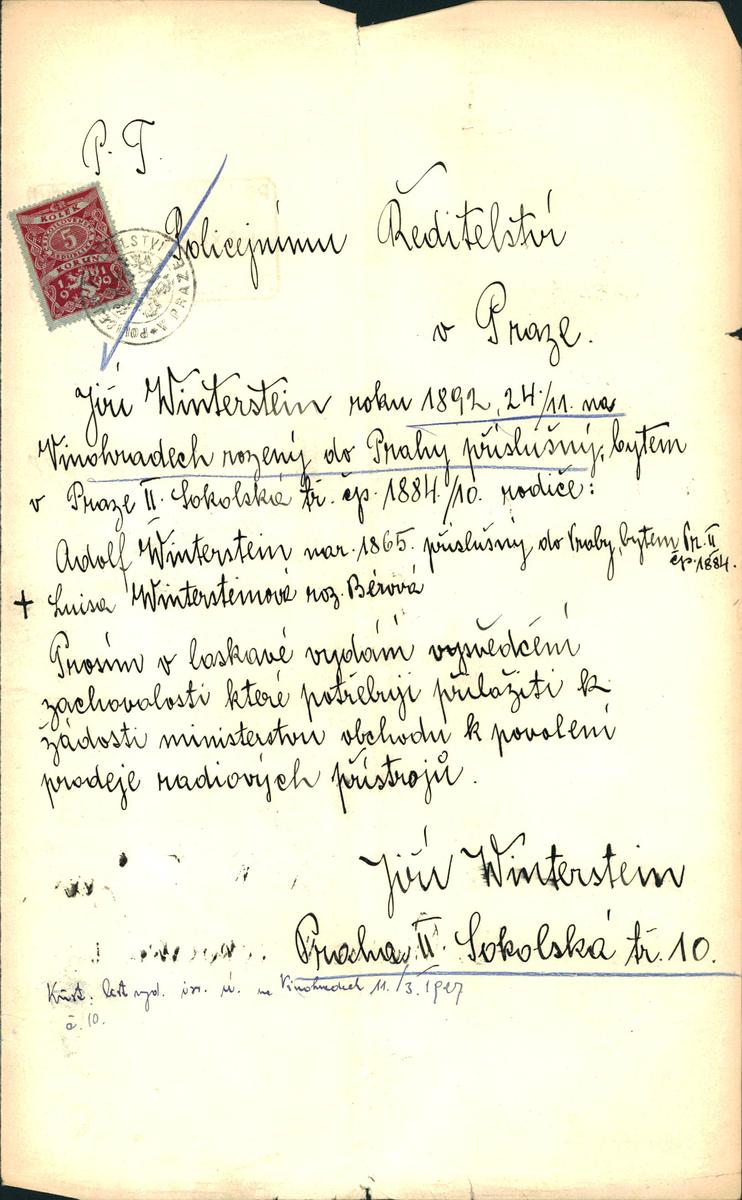 P. T.
KOLEK
5
KORUN
Policejnímu Ředitelství
v Praze.
Jiří Winterstein roku 1892, 24/11. na
Vinohradech rozený do Prahy příslušný, bytem
v Praze II. Sokolská tř. čp. 1884/10. rodiče:
Adolf Winterstein nar. 1865. příslušný do Vraby, bytem Pr. II
čp. 1884.
+ Luisa Wintersteinová roz. Bérová
Prosím o laskavé vydání vysvědčení
zachovalosti které potřebuji přiložiti k
žádosti ministerstvu obchodu k povolení
prodeje radiových přístrojů.
Jiří Winterstein
Praha, II. Sokolská tř. 10.
Křest. list vyd. isr. ú. na Vinohradech 11./3. 1927
č. 10.